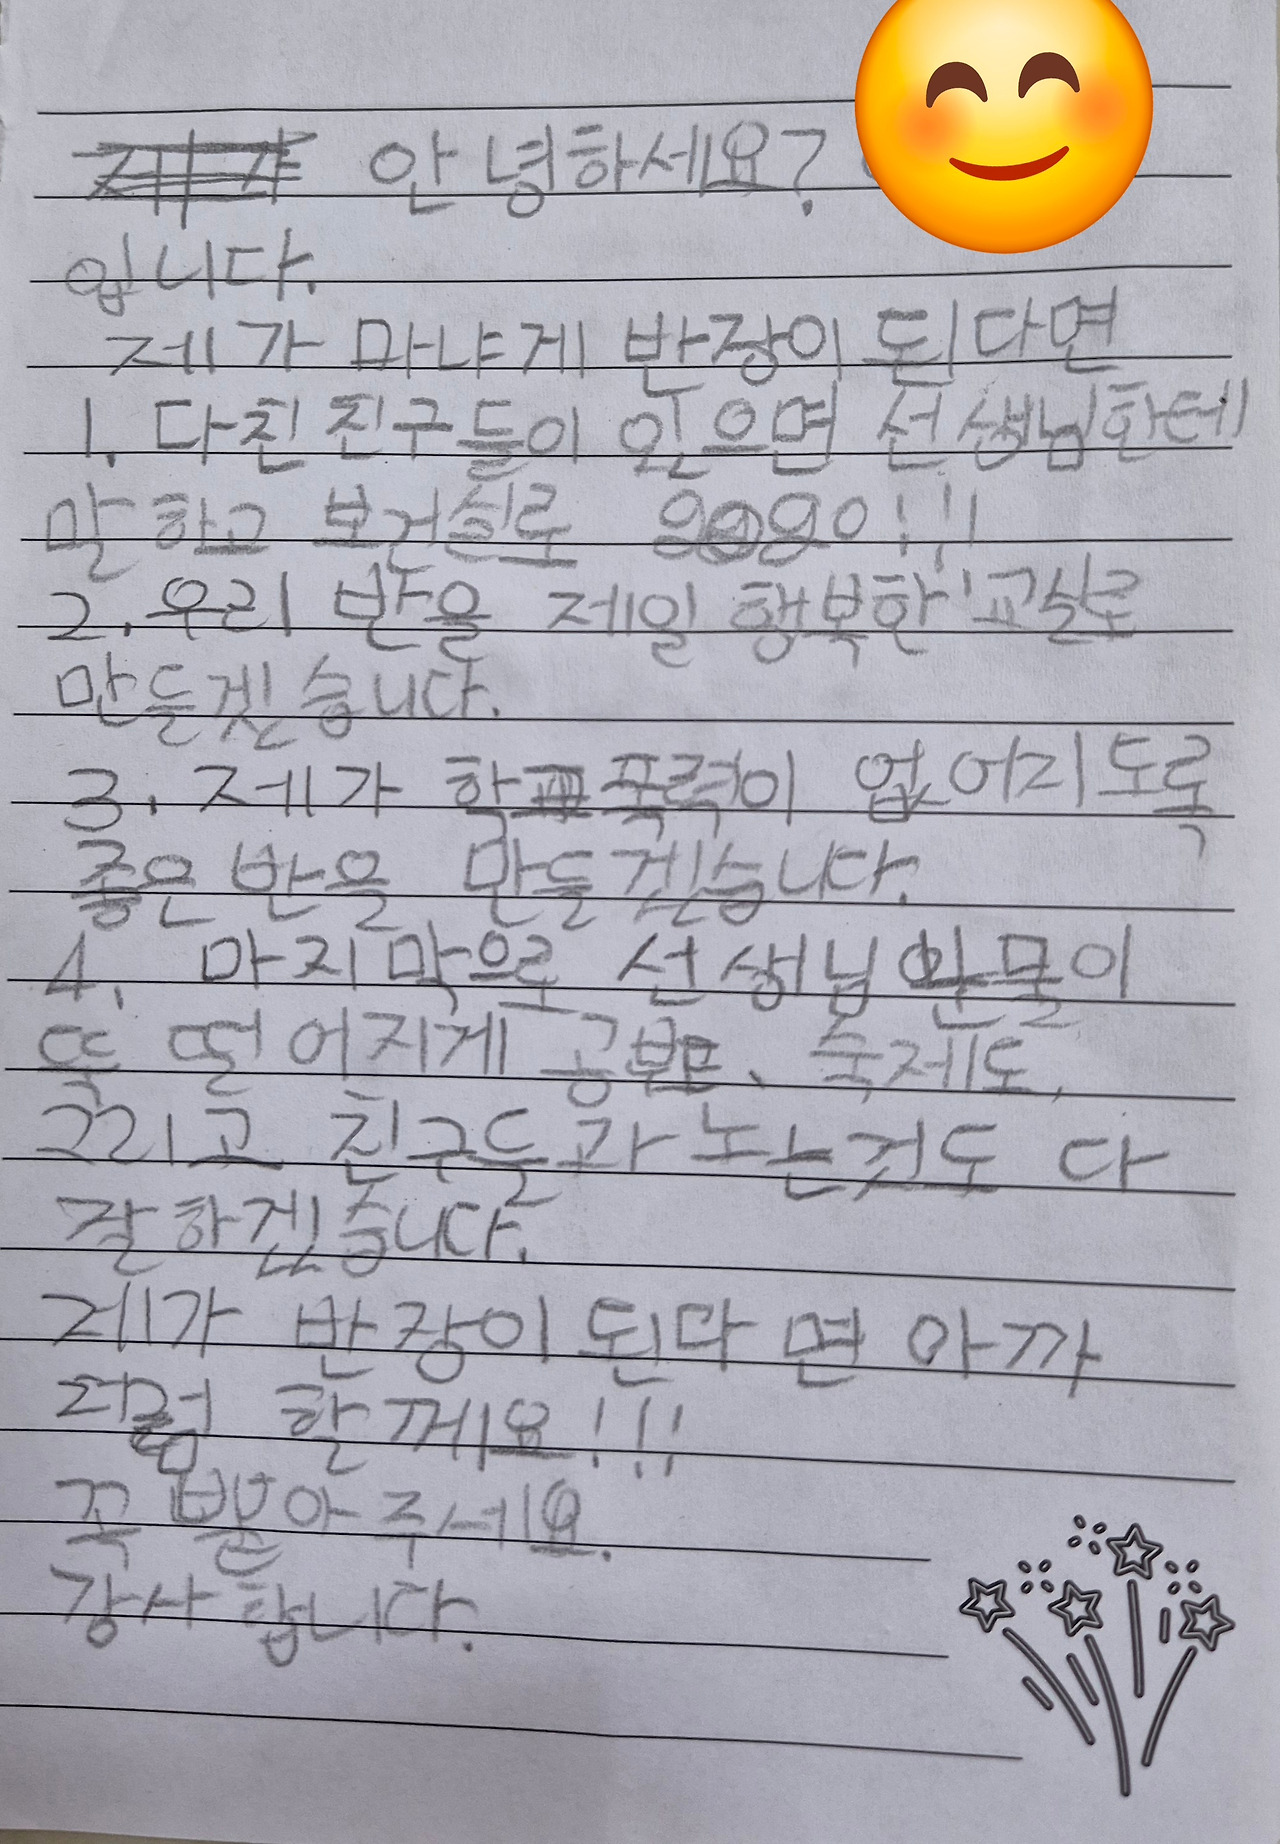 안녕하세요?
입니다.
제가 마냐게 반장이 된다면
1. 다친 친구들이 있으면 선생님한테
말하고 보건실로 !!!
2. 우리 반을 제일 행복한 교실로
만들겟습니다.
3. 제가 학교폭력이 없어지도록
좋은 반을 만들겠습니다.
4. 마지막으로 선생님 눈물이
뚝 떨어지게 공부도, 숙제도,
그리고 친구들과 노는것도 다
잘하겠습니다.
제가 반장이 된다면 아까
처럼 할께요!!!
꼭 뽑아주세요.
강사합니다.